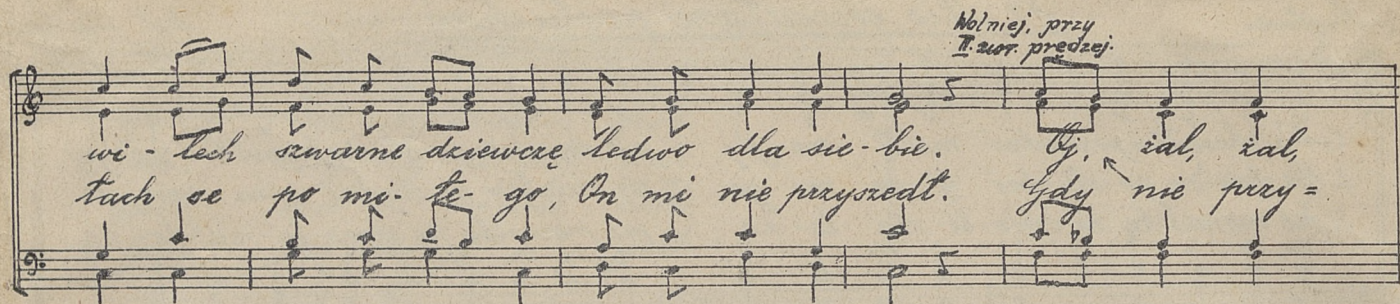 Wolniej, przy
II. zwr. prędzej.
wi - lech szwarne dziewczę ledwo dla sie - bie. Oj, żal, żal,
łach se po mi - łe - go, On mi nie przyszedł. Gdy nie przy =